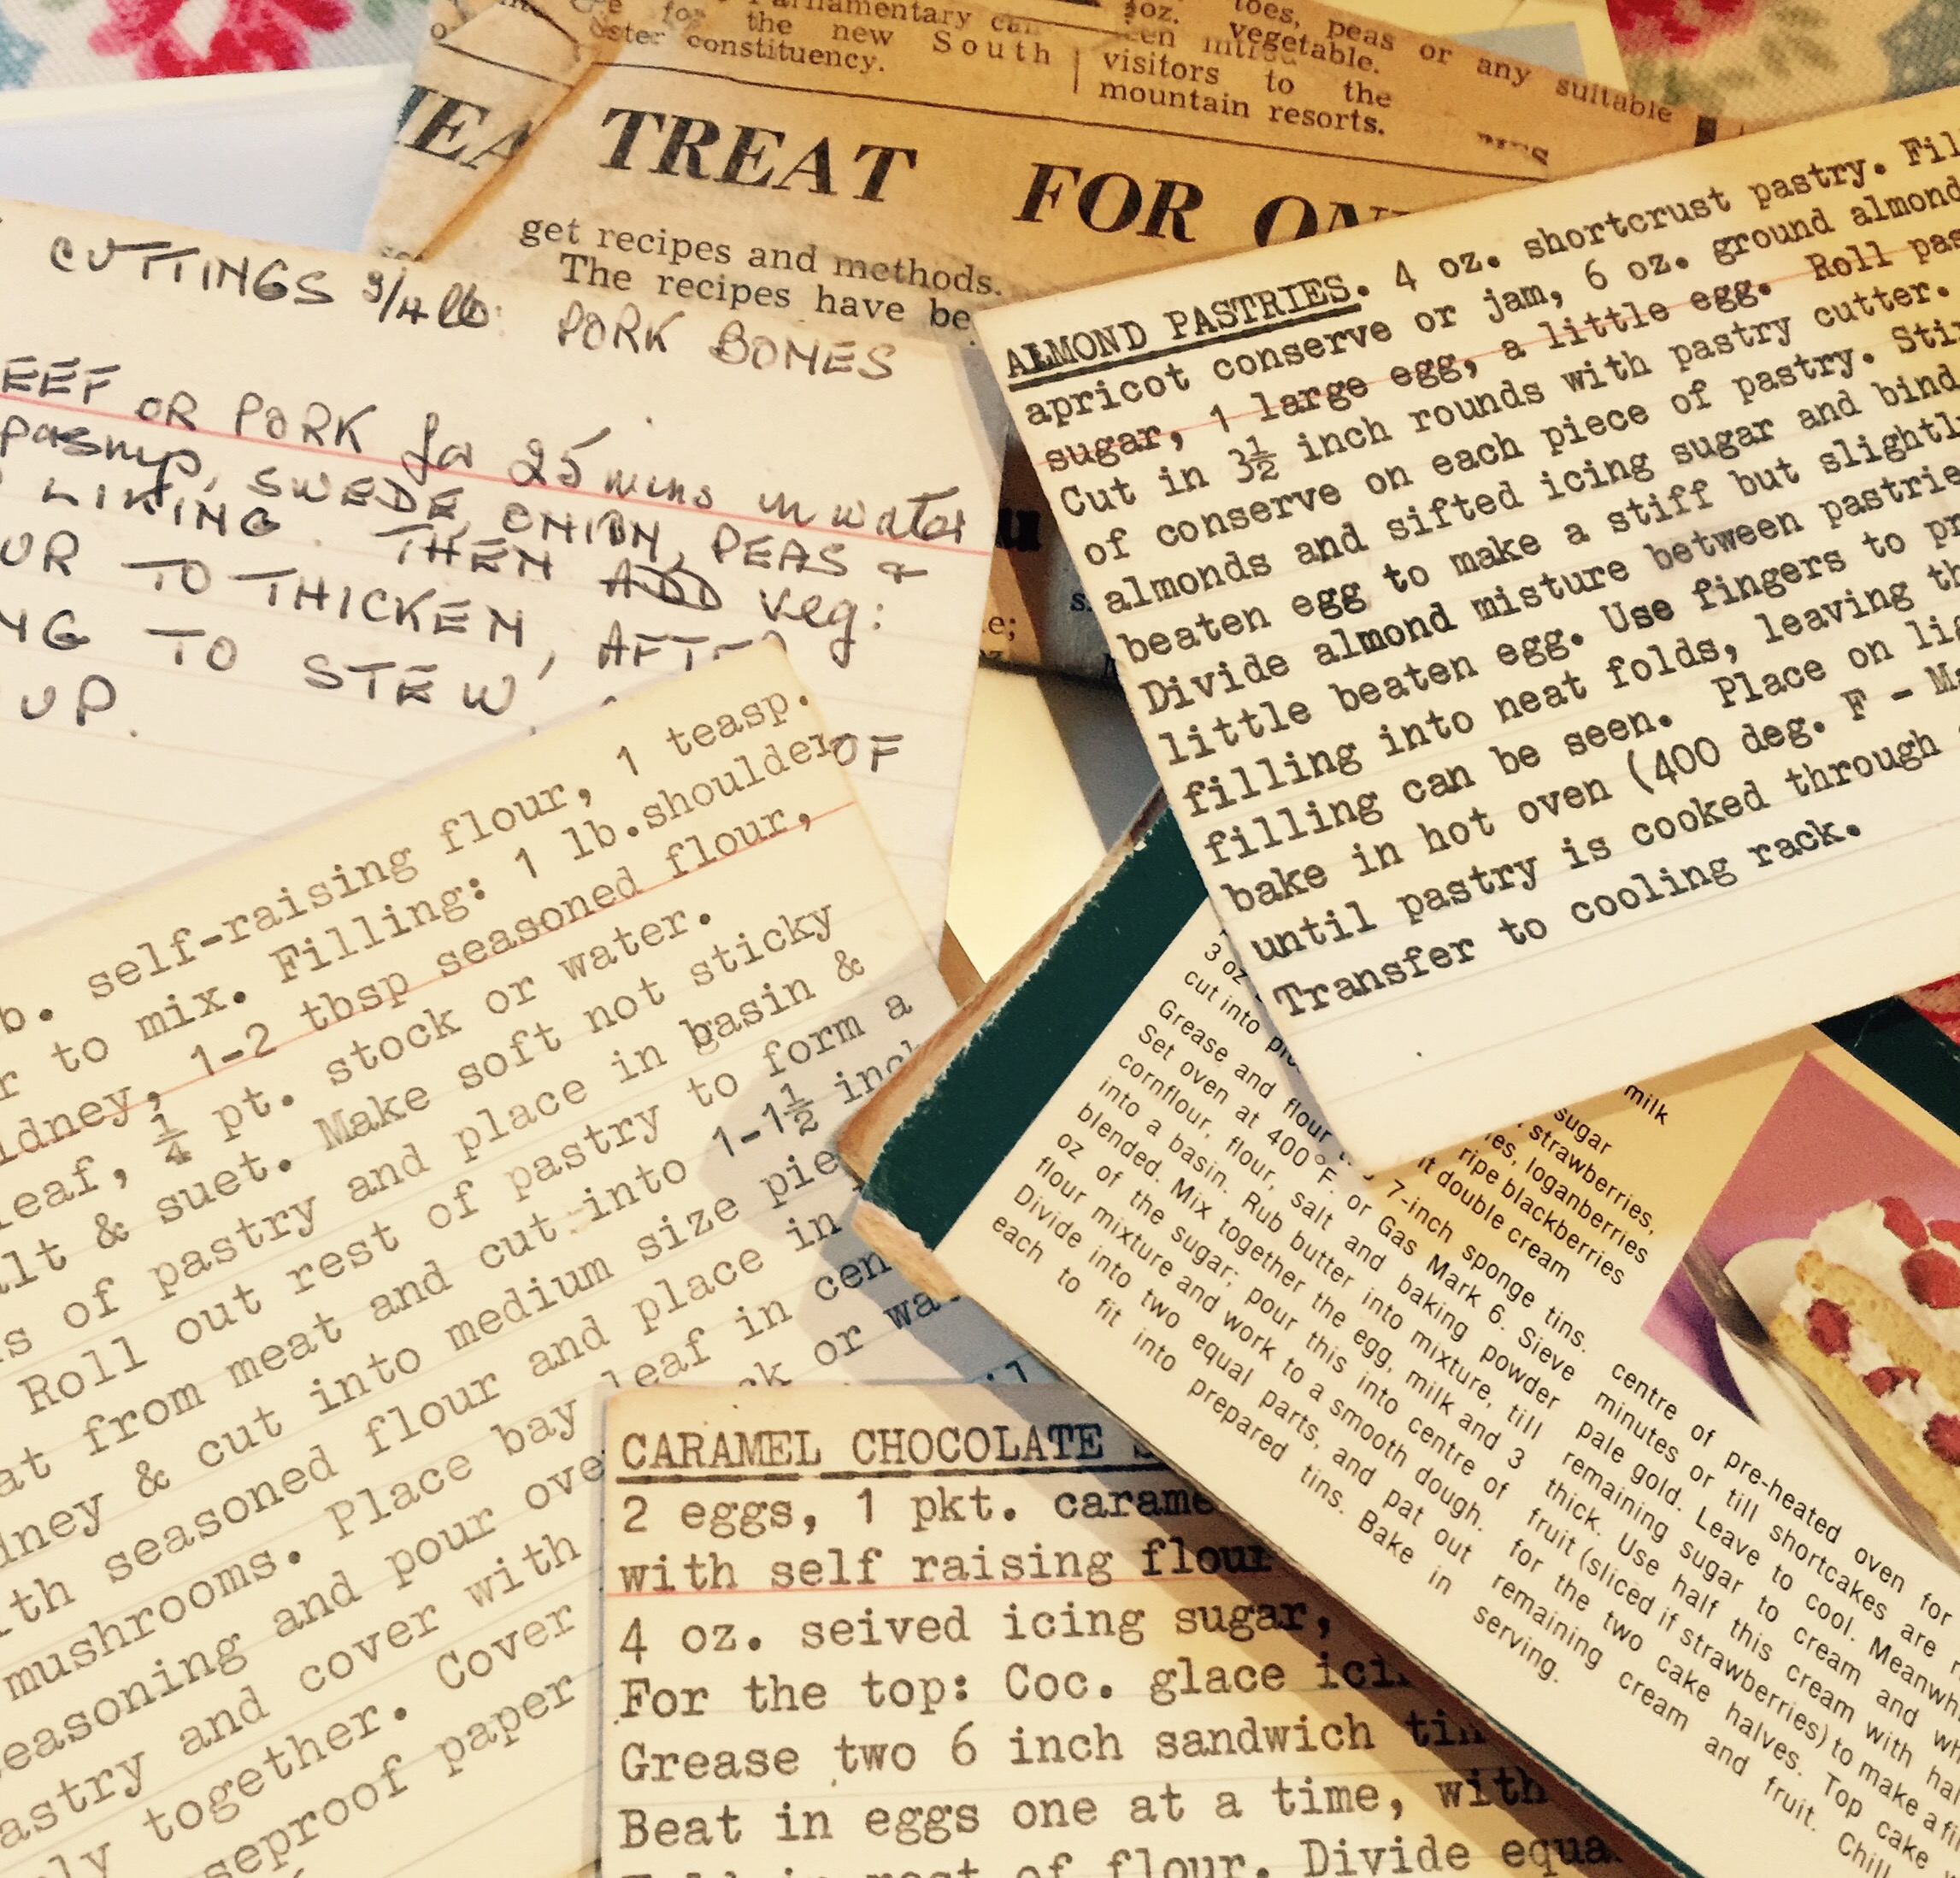 constituency.
the new South
vegetable.
toes, peas or any suitable
visitors to the
mountain resorts.
TREAT FOR
get recipes and methods.
The recipes have be
CUTTINGS 3/4 lb: PORK BONES
EEF OR PORK for 25 mins in water
pasnip, SWEDE, ONION, PEAS &
LIKING. THEN ADD veg:
UR TO THICKEN, AFTE
NG TO STEW,
UP.
OF
ALMOND PASTRIES. 4 oz. shortcrust pastry. Fil
apricot conserve or jam, 6 oz. ground almond
sugar, 1 large egg, a little egg. Roll pas
Cut in 3½ inch rounds with pastry cutter.
of conserve on each piece of pastry. Sti
almonds and sifted icing sugar and bind
beaten egg to make a stiff but slightl
Divide almond misture between pastrie
little beaten egg. Use fingers to pr
filling into neat folds, leaving th
filling can be seen. Place on lig
bake in hot oven (400 deg. F - Ma
until pastry is cooked through
Transfer to cooling rack.
b. self-raising flour, 1 teasp.
r to mix. Filling: 1 lb.shoulder
idney, 1-2 tbsp seasoned flour,
leaf, ¼ pt. stock or water.
alt & suet. Make soft not sticky
s of pastry and place in basin &
Roll out rest of pastry to form a
at from meat and cut into 1-1½ inch
dney & cut into medium size pie
th seasoned flour and place in
mushrooms. Place bay leaf in cen
easoning and pour ove ck or wa
astry and cover with
ly together. Cover
seproof paper
CARAMEL CHOCOLATE
2 eggs, 1 pkt. carame
with self raising flour
4 oz. seived icing sugar,
For the top: Coc. glace ici
Grease two 6 inch sandwich tin
Beat in eggs one at a time, with
rest of flour. Divide equa
milk
sugar
strawberries,
es, loganberries
ripe blackberries
t double cream
3 oz
cut into pie
Grease and flour 7-inch sponge tins.
Set oven at 400°F. or Gas Mark 6. Sieve
cornflour, flour, salt and baking powder
into a basin. Rub butter into mixture, till
blended. Mix together the egg, milk and 3
oz of the sugar; pour this into centre of
flour mixture and work to a smooth dough.
Divide into two equal parts, and pat out
each to fit into prepared tins. Bake in
centre of pre-heated oven for
minutes or till shortcakes are
pale gold. Leave to cool. Meanwhi
thick. Use half this cream and wh
remaining sugar to cream with hal
fruit (sliced if strawberries) to make a fil
for the two cake halves. Top cake
remaining cream and fruit. Chill
serving.